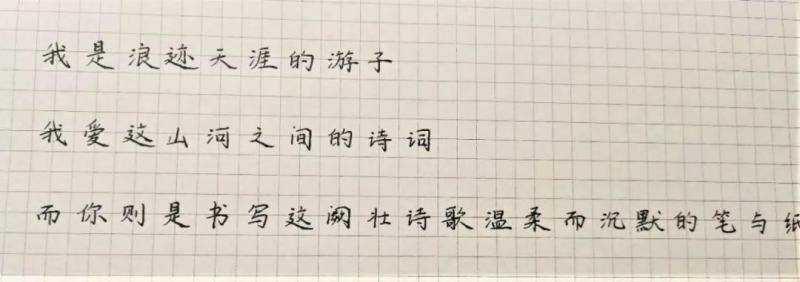 我是浪迹天涯的游子
我爱这山河之间的诗词
而你则是书写这阕壮诗歌温柔而沉默的笔与纸